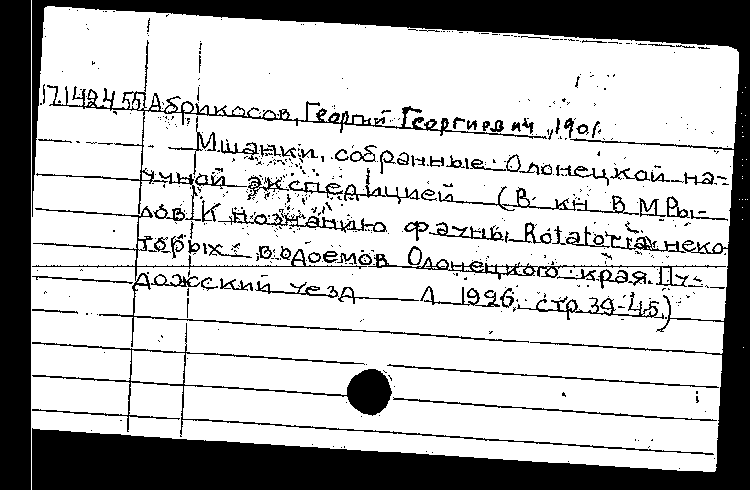 17.142455 Абрикосов, Георгий Георгиевич, 190
Мшанки, собранные Олонецкой на-
учной экспедицией (В кн В.М.Ры-
лов К познанию фауны Rotatoria неко
торых водоемов Олонецкого края. Пу-
дожский уезд Л 1926. стр. 39-45.)